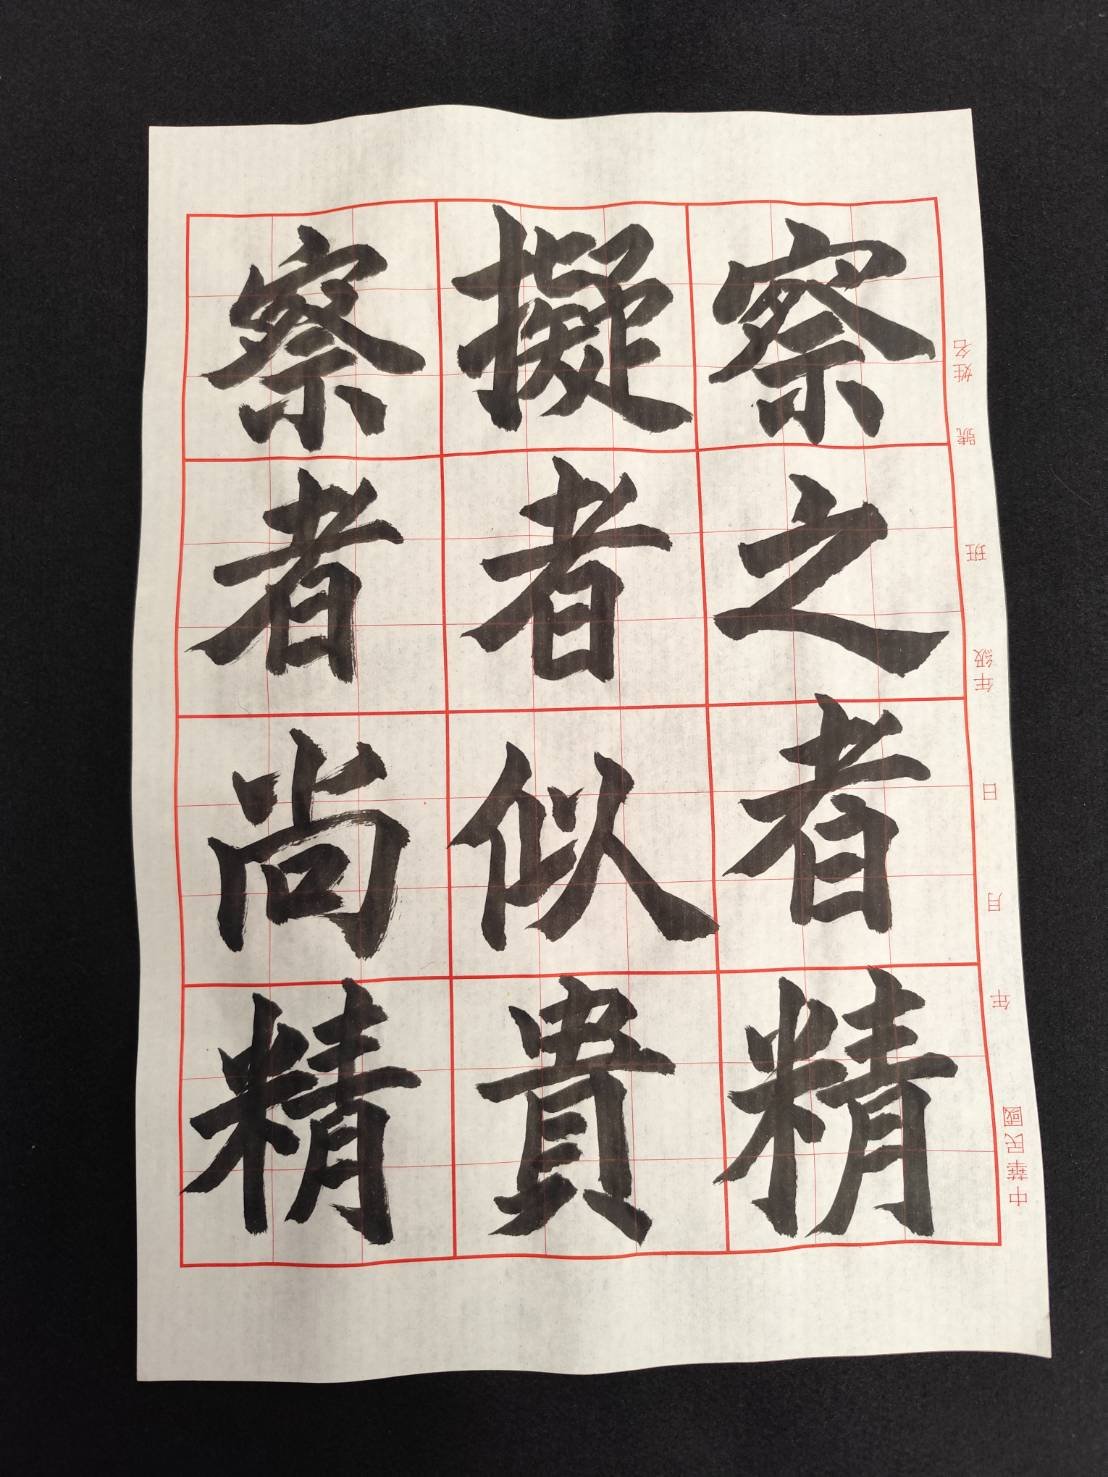 察之者精
擬者似貴
察者尚精
中華民國 年 月 日 年級 班 號 姓名